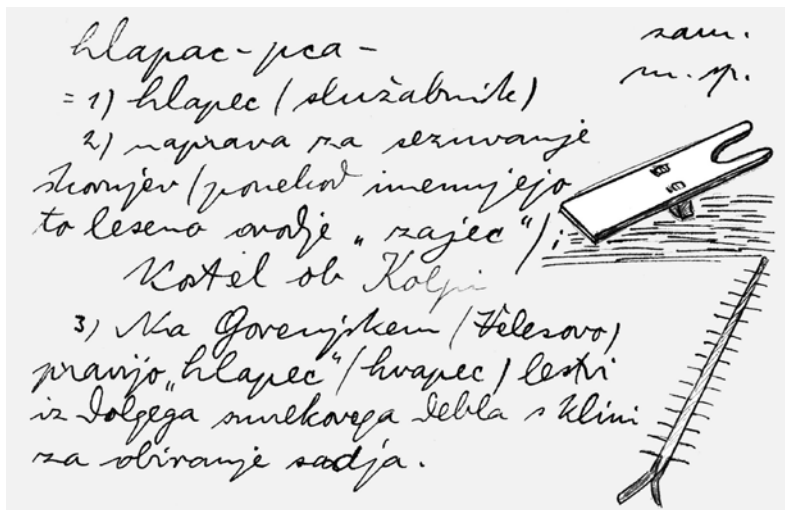 hlapac -pca- sam.
m. sp.
= 1) hlapec (služabnik)
2) naprava za sezuvanje
škornjev (ponekod imenujejo
to leseno orodje „zajec“);
Kostel ob Kolpi
3) Na Gorenjskem (Velesovo)
pravijo „hlapec“ (hvapec) lestvi
iz dolgega smrekovega debla s klini
za obiranje sadja.